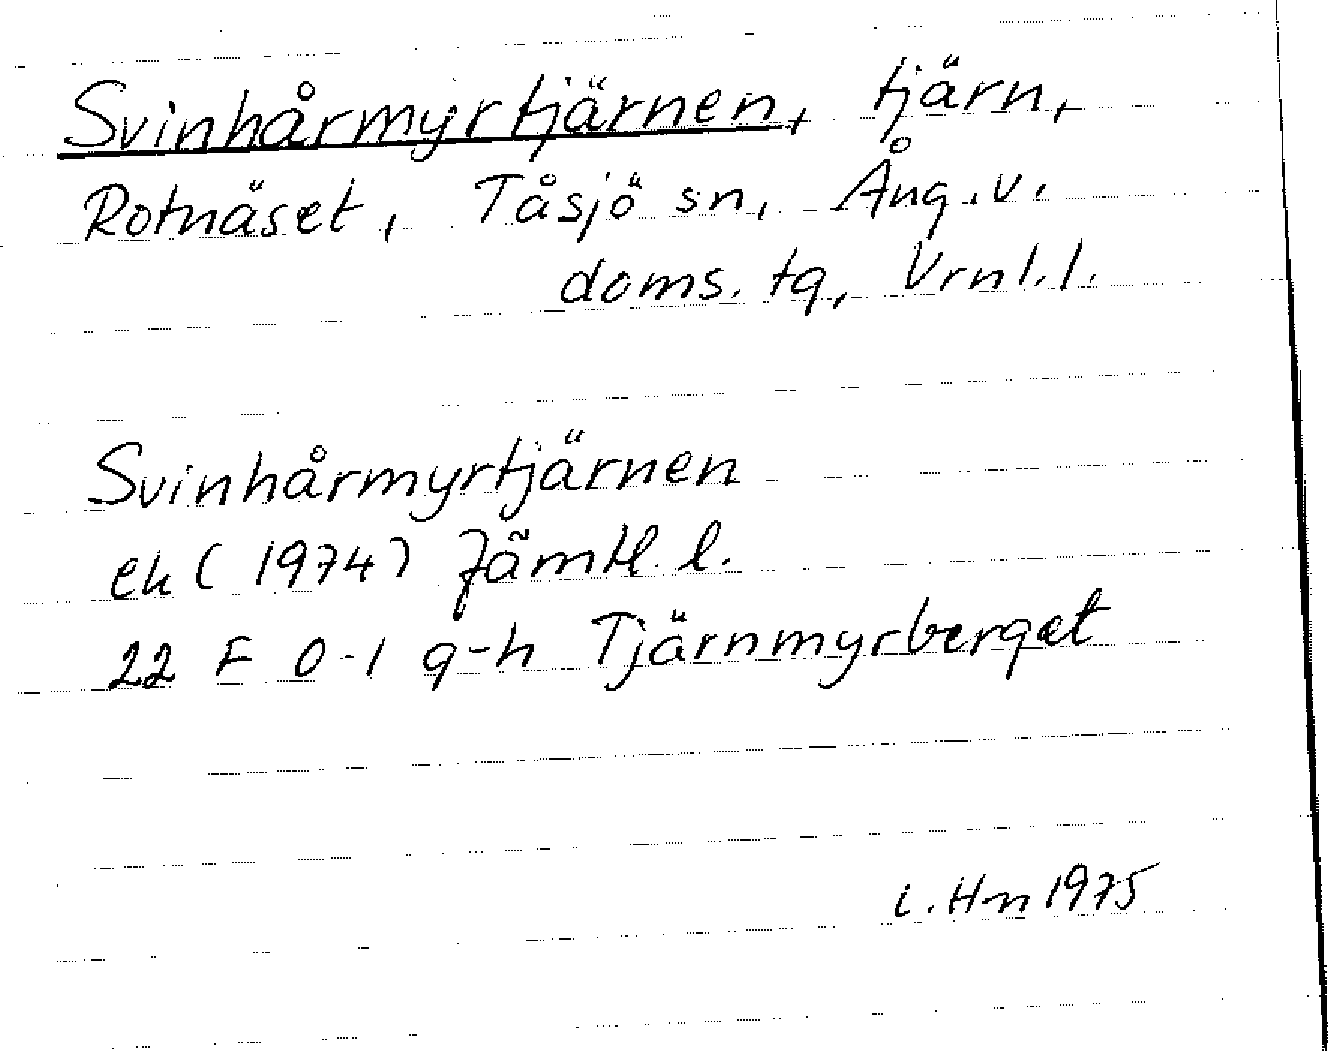 Svinhårmyrtjärnen, tjärn,
Rotnäset, Tåsjö sn, Ång.v.
doms. tg, Vrnl.l.
Svinhårmyrtjärnen
ek (1974) Jämtl. l.
22 F 0-1 g-h Tjärnmyrberget
L. Hn 1975